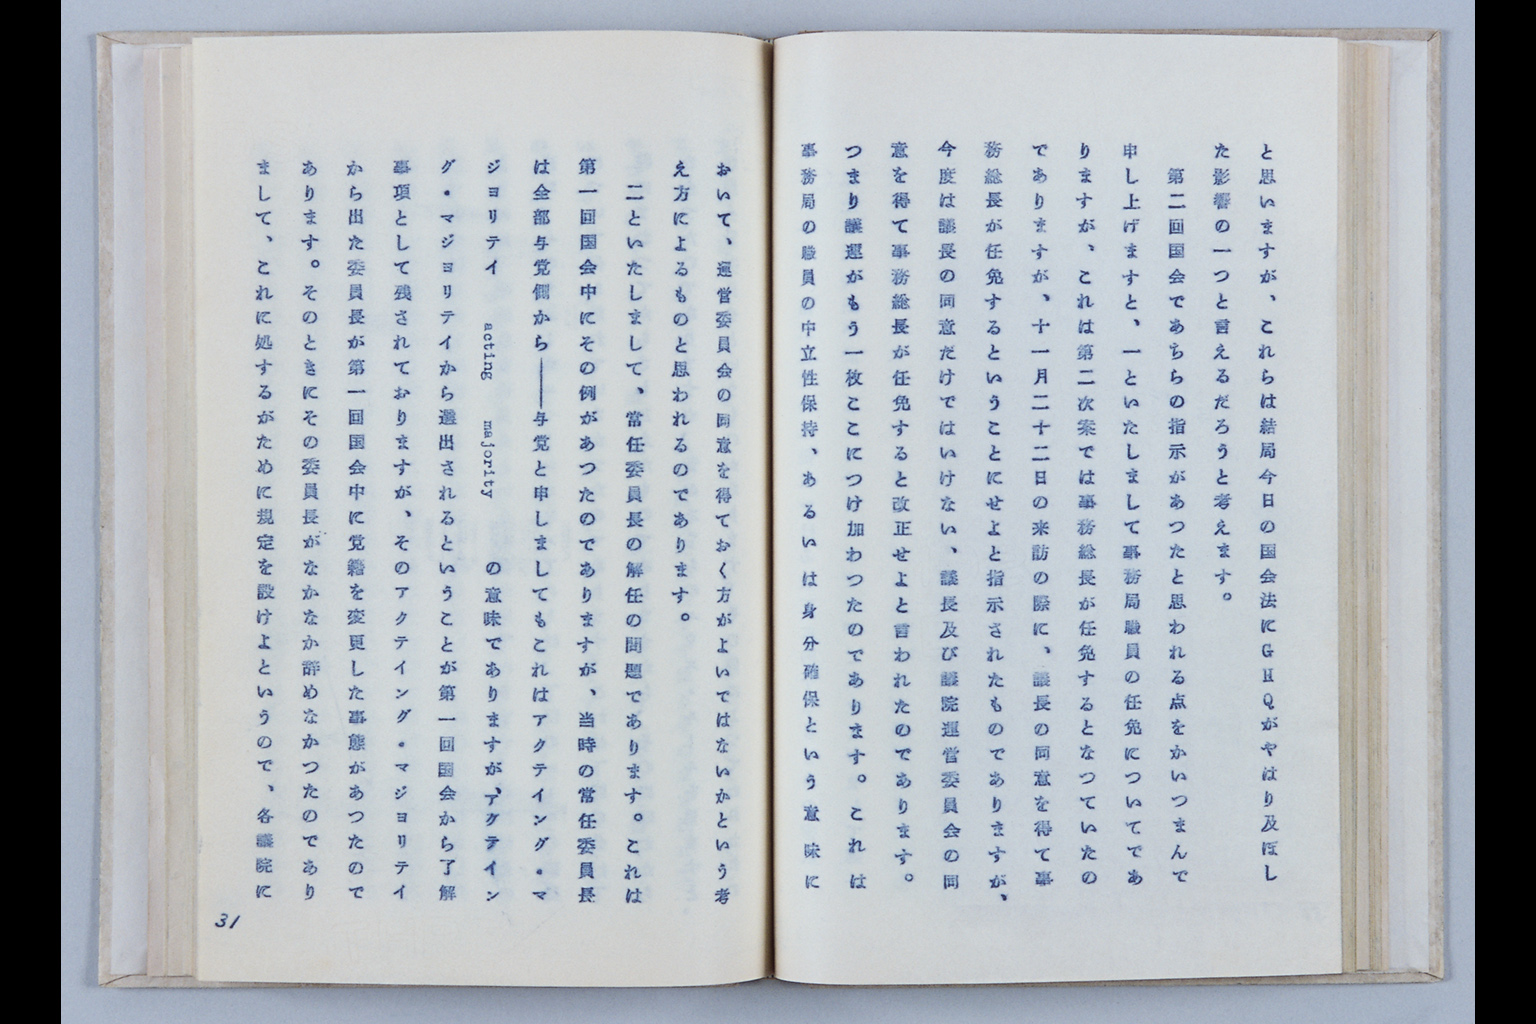 と思いますが、これらは結局今日の国会法にGHQがやはり及ぼし
た影響の一つと言えるだろうと考えます。
第二回国会であちらの指示があつたと思われる点をかいつまんで
申し上げますと、一といたしまして事務局職員の任免についてであ
りますが、これは第二次案では事務総長が任免するとなつていたの
でありますが、十一月二十二日の来訪の際に、議長の同意を得て事
務総長が任免するということにせよと指示されたものでありますが、
今度は議長の同意だけではいけない、議長及び議院運営委員会の同
意を得て事務総長が任免すると改正せよと言われたのであります。
つまり議運がもう一枚ここにつけ加わつたのであります。これは
事務局の職員の中立性保持、あるいは身分確保という意味に
おいて、運営委員会の同意を得ておく方がよいではないかという考
え方によるものと思われるのであります。
二といたしまして、常任委員長の解任の問題であります。これは
第一回国会中にその例があつたのでありますが、当時の常任委員長
は全部与党側から――与党と申しましてもこれはアクテイング・マ
ジヨリテイ acting majority の意味でありますが、アクテイン
グ・マジヨリテイから選出されるということが第一回国会から了解
事項として残されておりますが、そのアクテイング・マジヨリテイ
から出た委員長が第一回国会中に党籍を変更した事態があつたので
あります。そのときにその委員長がなかなか辞めなかつたのであり
まして、これに処するがために規定を設けよというので、各議院に
31